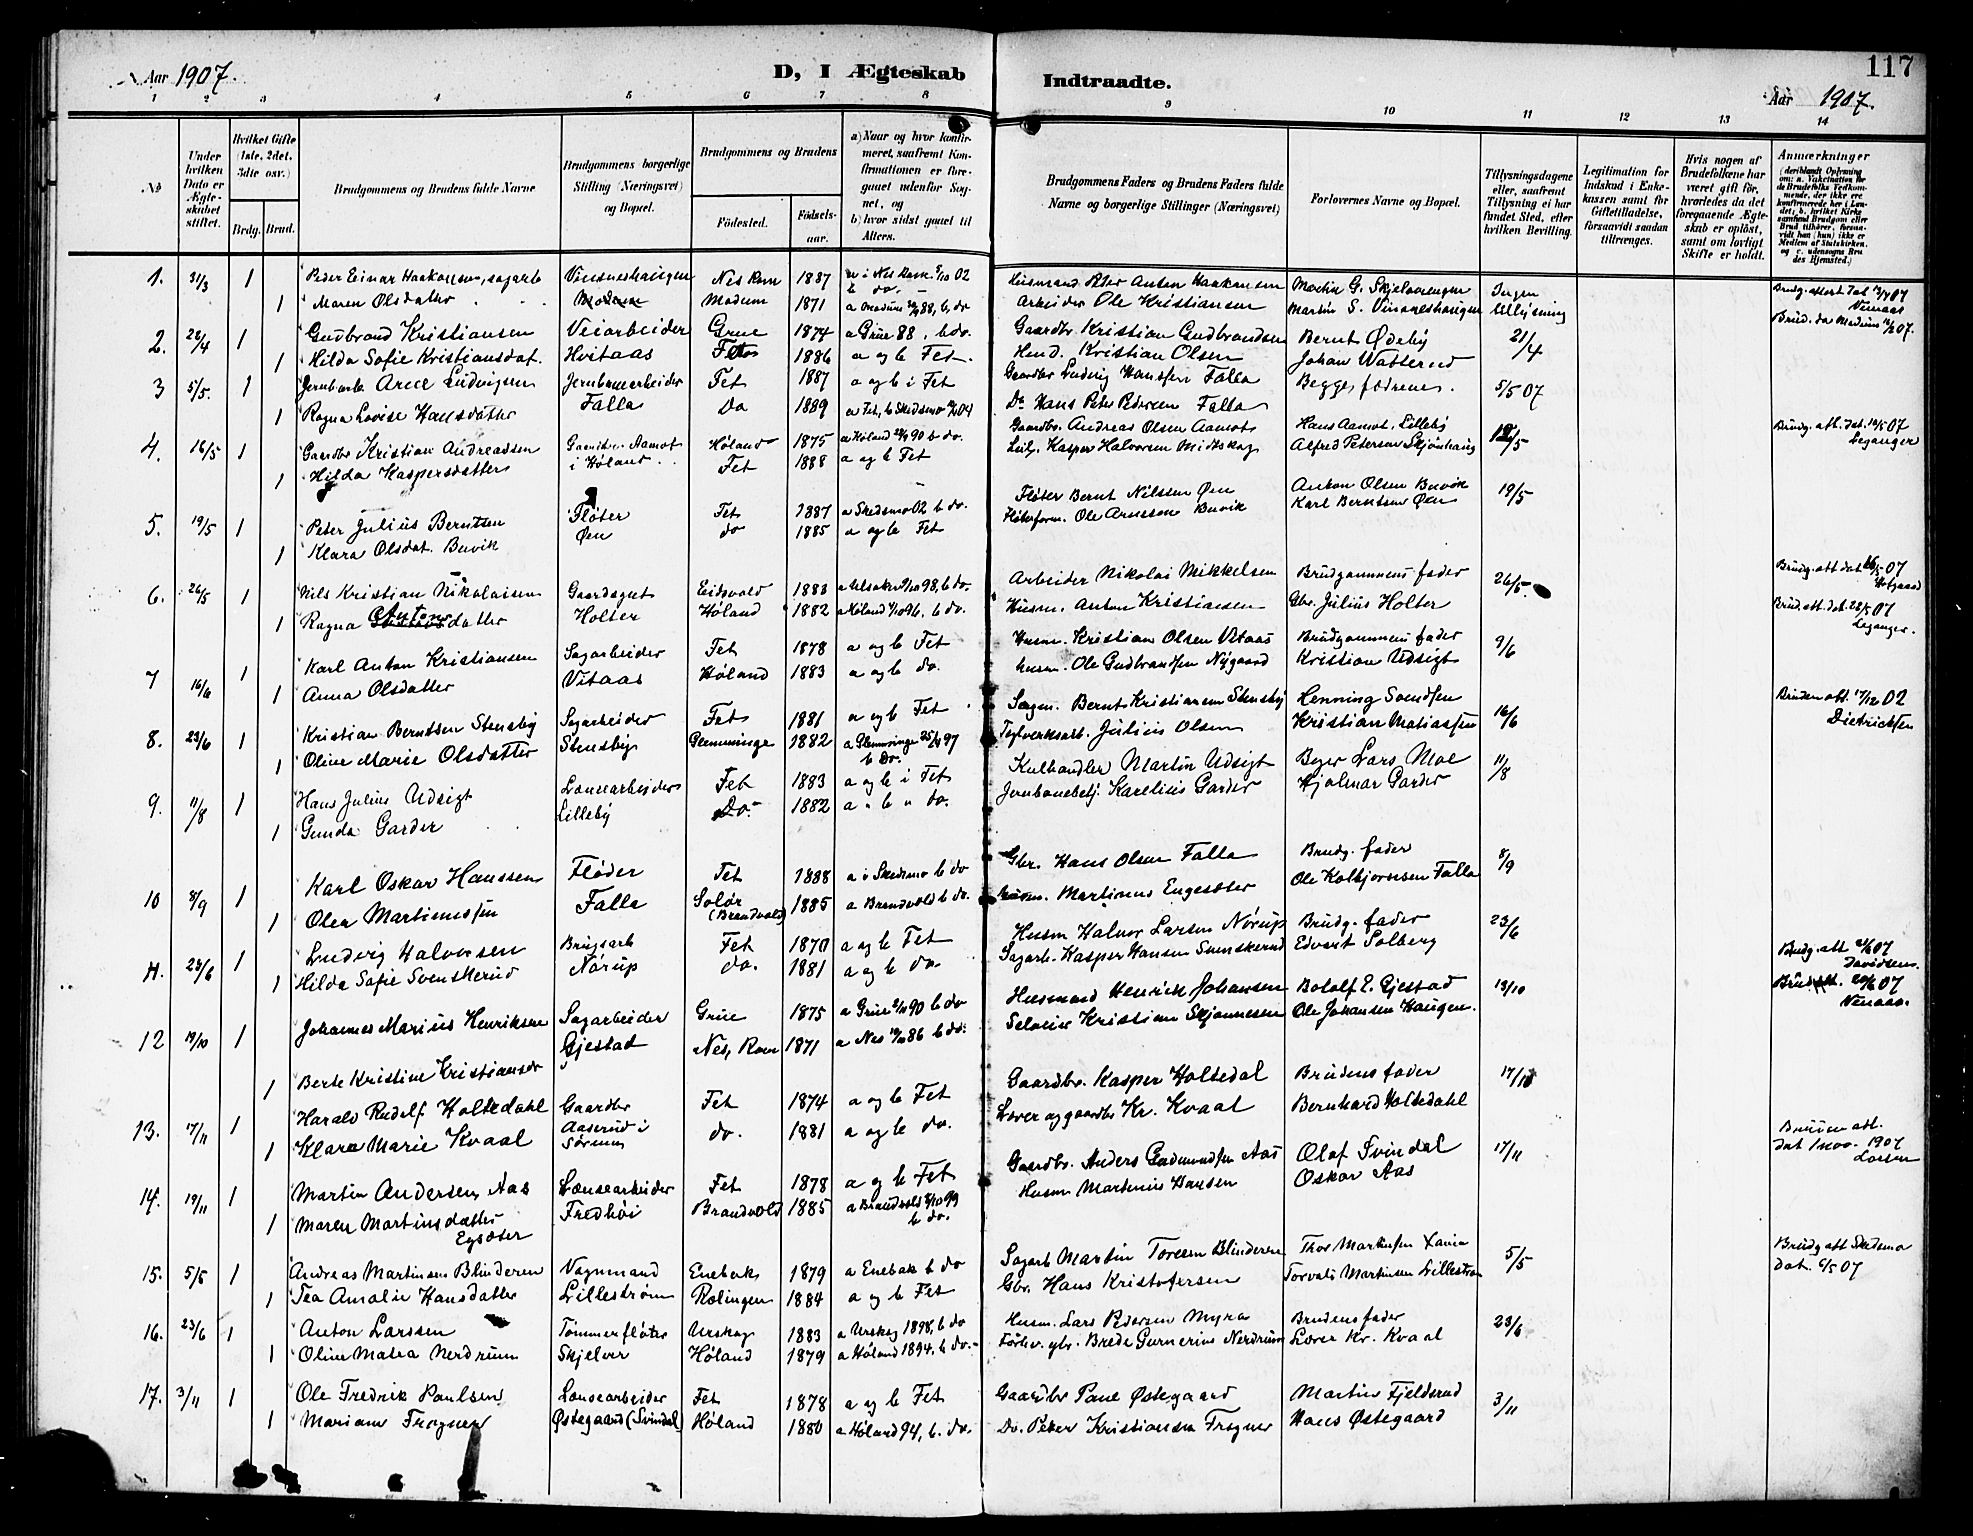 Aar 1907.
D, I Ægteskab Indtraadte.
117
Aar 1907.
1 2 3 4 5 6 7 8 9 10 11 12 13 14
No
Under hvilken Dato er Ægteskabet stiftet.
Hvilket Gifte (1ste, 2det, 3die osv.)
Brdg. Brud.
Brudgommens og Brudens fulde Navne
Brudgommens borgerlige Stilling (Næringsvei) og Bopæl.
Brudgommens og Brudens
Fødested. Fødselsaar.
a) Naar og hvor konfirmeret, saafremt Konfirmationen er foregaaet udenfor Sognet, og
b) hvor sidst gaaet til Alters.
Brudgommens Faders og Brudens Faders fulde Navne og borgerlige Stillinger (Næringsvei)
Forlovernes Navne og Bopæl.
Tillysningsdagene eller, saafremt Tillysning ei har fundet Sted, efter hvilken Bevilling.
Legitimation for Indskud i Enkekassen samt for Giftetilladelse, forsaavidt saadan tiltrænges.
Hvis nogen af Brudefolkene har været gift før, hvorledes da det foregaaende Ægteskab er opløst, samt om lovligt Skifte er holdt.
Anmærkninger
1. 31/3 1 Peder Einar Haakonsen, sagarb Vinsneshaugen Nes Rom 1887 a i Nes Rom. 5/10 02 b do. Husmand Peter Anton Haakonsen Martin G. Skjelvorengen Ingen Brudg. attest dat 13/3 07 Neuaas
1 Maren Olsdatter Modum 1871 a Modum 88, b do Arbeider Ole Kristiansen Martin S. Vinsneshaugen tillysning Brud. da Modum 07.
2. 28/4 1 Gudbrand Kristiansen Veiarbeider Grue 1874 a Grue 88, b do. Gaardbr. Kristian Gudbrandsen Bernt Ødeby 21/4
1 Hilda Sofie Kristiansdat. Hvitaas Fet 1886 a og b Fet. Kristian Olsen Johan Watterud
3 5/5. 1 Jernbarb Arne Ludvigsen Jernbanearbeider Fet 1887 a og b i Fet Gaardbr Ludvig Hanssen Falla Begges fædrene. 5/5 07
1 Ragna Lovise Hansdatter Falla Do 1889 a Fet, b Skedsmo 04 Do Hans Peter Pedersen Falla
4. 16/5 1 Gaardbr Kristian Andreassen Aamot Høland 1875 a Høland 90 b do. Gaardbr. Andreas Olsen Aamot Hans Aamot. Lilleby 12/5 Brudg. att. dat. 14/5 07 Leganger
1 Hilda Kaspersdatter i Høland Fet 1888 a og b Fet Kasper Halvorsen Midtskog Alfred Petersen Skjønhaug
5. 19/5 1 Peter Julius Berntsen Fløter Fet 1887 a Skedsmo 02 b do. Fløter Bernt Nilssen Øen Anton Olsen Buvik 19/5
1 Klara Olsdat. Buvik Øen do 1885 a og b Fet Fløterform. Ole Arnesen Buvik Karl Berntsen Øen
6. 26/5 1 Nils Kristian Nikolaisen Gaardsgut Eidsvold 1883 98, b do. Arbeider Nikolai Mikkelsen Brudgommens fader 26/5. Brudg. att dat 16/5 07
1 Ragna Antonsdatter Holter Høland 1882 a Høland 96, b do. Husm. Anton Kristiansen Gbr. Julius Holter Brud. att. dat. 22/5 07 Leganger.
7 16/6 1 Karl Anton Kristiansen Sagarbeider Fet 1878 a og b Fet Husm. Kristian Olsen Vitaas Brudgommens fader 9/6
1 Anna Olsdatter Vitaas Høland 1883 a og b do. Husm. Ole Gudbrandsen Nygaard Kristian Udsigt
8. 23/6 1 Kristian Berntsen Stensby Sagarbeider Fet 1881 a og b Fet. Sagm. Bernt Kristiansen Stensby Henning Svendsen 16/6 Bruden att. 17/12 02 Dietrichsen
1 Oline Marie Olsdatter Stensby Glemminge 1882 a Glemminge 97 b Do. Teglverksarb. Julius Olsen Kristian Matiassen
9. 11/8 1 Hans Julius Udsigt Lensearbeider Fet 1883 a og b i Fet Kulhandler Martin Udsigt Lars Moe 11/8
1 Gunda Garder Lilleby Do. 1882 a " b " do. Jernbanebetj. Karelius Garder Hjalmar Garder
10 8/9 1 Karl Oskar Hanssen Fløder Fet 1888 a i Skedsmo b do Gbr. Hans Olsen Falla Brudg. fader 8/9
1 Olea Martinussen Falla Solør (Brandvold) 1885 a Brandvold b do. Husm. Martinus Engesæter Ole Kolbjørnsen Falla
11. 23/6 1 Ludvig Halvorsen Brugsarb Fet 1870 a og b Fet Husm Halvor Larsen Nørup Brudg. fader 23/6
1 Hilda Sofie Svenskerud Nørup do. 1881 a og b do. Sagarb. Kasper Hansen Svenskerud Edvart Solberg Brudg. att 07 Davidsen.
12 19/10 1 Johannes Marius Henriksen Sagarbeider Grue 1875 a Grue 90 b do Husmand Henrik Johansen Botolf E. Gjestad 13/10 Brud att. 07 Neuaas.
1 Berte Kristine Kristiansdr Gjestad Nes, Rom 1871 a Nes 86 b do. Kristian Skjønnesen Ole Johansen Haugen.
13. 17/11 1 Harald Rudolf Holtedahl Gaardbr Fet 1874 a og b Fet Gaardbr. Kasper Holtedal Brudens fader 17/11
1 Klara Marie Kvaal Aaserud i Sørum do. 1881 a og b do. Lærer og gaardbr Kr. Kvaal Bernhard Holtedahl
14. 19/11 1 Martin Andersen Aas Lensearbeider Fet 1878 a og b Fet Gaardbr. Anders Gudmundsen Aas Olaf Svindal 17/11 Bruden att. dat 1 nov. 1907 Larsen
1 Maren Martinsdatter Egsæter Fredhøi Brandvold 1885 a Brandvold 99 b do. Husm Martinius Hansen Oskar Aas
15. 5/5 1 Andreas Martinsen Blinderen Vognmand Enebak 1879 a Enebak b do Sagarb Martin Toresen Blinderen Thor Martinsen 5/5 Brudg att Skedsmo dat. 6/5 07
1 Tea Amalie Hansdatter Lillestrøm Rælingen 1884 a og b Fet Gbr. Hans Kristofersen Torvald Martinsen Lillestrøm
16. 23/6 1 Anton Larssen Tømmerfløter Urskog 1883 a Urskog 1898, b do Husm. Lars Pedersen Myra Brudens fader 23/6
1 Oline Matea Nerdrum Skjelver Høland 1879 a Høland 1894, b do. Forhv. gbr. Brede Gunnerius Nerdrum Lærer Kr. Kvaal
17. 3/11 1 Ole Fredrik Paulsen Lensearbeider Fet 1878 a og b Fet Gaardbr Paul Østegaard Martin Fjeldsrud 3/11
1 Mariane Frogner Østegaard (Svindal) Høland 1880 a Høland 94, b. do. Do. Peter Kristiansen Frogner Hans Østegaard